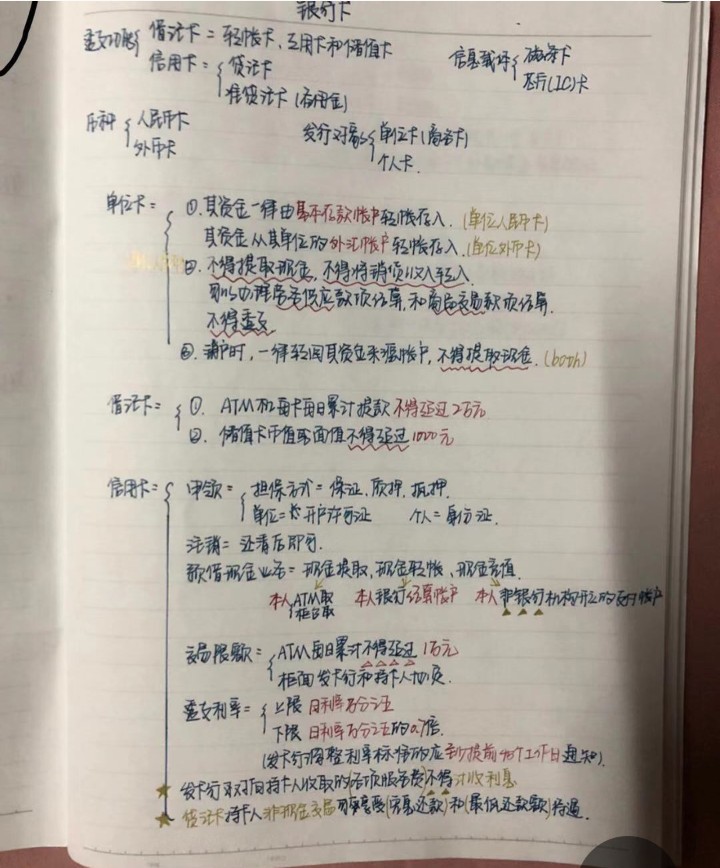 银行卡
透支功能 借记卡=转帐卡、专用卡和储值卡
信用卡= 贷记卡
准贷记卡(备用金)
信息载体 磁条卡
芯片(IC)卡
币种 人民币卡
外币卡
发行对象 单位卡(商务卡)
个人卡.
单位卡= ①.其资金一律由基本存款帐户转帐存入.(单位人民币卡)
其资金从其单位的外汇帐户转帐存入.(单位外币卡)
②.不得提取现金,不得将销货收入转入.
可以办理商品供应款项结算,和商品交易款项结算.
不得透支
③.销户时,一律转回其资金来源帐户,不得提取现金.(both)
借记卡= ①. ATM机每卡每日累计提款不得超过2万元
②. 储值卡币值或面值不得超过1000元
信用卡= 申领= 担保方式=保证、质押、抵押.
单位= 开户许可证 个人=身份证.
注销=还清后即可.
预借现金业务=现金提取、现金转帐、现金充值.
本人ATM取 本人银行结算帐户 本人非银行机构开立的支付帐户
柜台取
交易限额= ATM每日累计不得超过1万元
柜面发卡行和持卡人协议.
透支利率= 上限 日利率万分之五
下限 日利率万分之五的0.7倍.
(发卡行调整利率标准的应 提前45个工作日通知)
★ 发卡行对 持卡人收取的各项服务费不得计收利息
★ 贷记卡持卡人非现金交易可享受(免息还款)和(最低还款额)待遇.